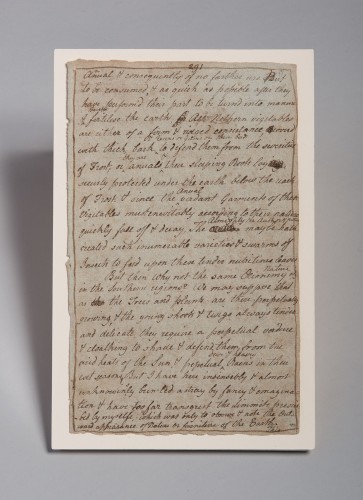 291
Annual & consequently of no farther use But
to be consumed, & as quick as possible after they
have performed their part to be turned into manure
& fertilise the earth
are either of a firm & consistence, covered
with thick bark to defend them from the severities
of Frost, or annuals whose sleeping Roots
securely protected under the earth below the
of Frost, & since the verdant Garments of these
annual
Vegitables must inevitably according to their nature
quickly fall off & decay, She may be has
created such innumerable varieties & swarms of
Insects to feed upon their tender nutritive leaves
But then why not the same Oeconomy of
Nature
in the Southern regions? We may suppose that
as the Trees and plants, are there perpetually
growing, & the young shoots & twigs always tender
and delicate they require a perpetual verdure
& cloathing to shade & defend them from the
heats of the Sun, & perpetual Rains in
But I have here insensibly & almost
unknowingly been led astray by fancy & imagina
tion & have too far transgrest the limmits prescri
bed by myself, which was only to observe & note the out
ward appearance of Nature or furniture of the Earth